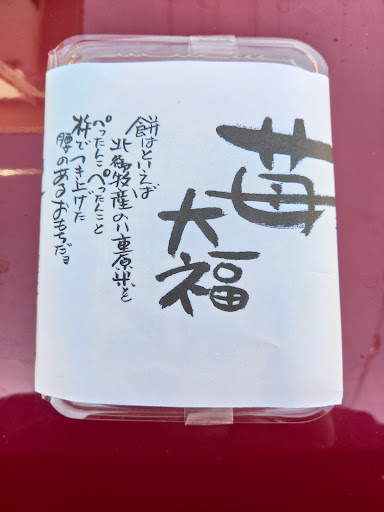 苺
大福
餅はといえば
北御牧産の八重原米を
ぺったんこ ぺったんこと
杵でつき上げた
腰のあるおもちだョ